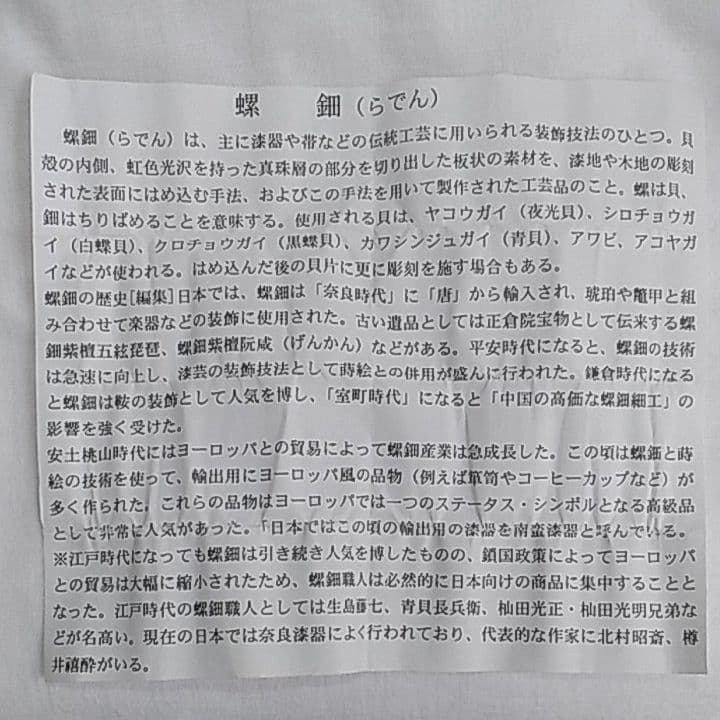 螺　鈿（らでん）
螺鈿（らでん）は、主に漆器や帯などの伝統工芸に用いられる装飾技法のひとつ。貝
殻の内側、虹色光沢を持った真珠層の部分を切り出した板状の素材を、漆地や木地の彫刻
された表面にはめ込む手法、およびこの手法を用いて製作された工芸品のこと。螺は貝、
鈿はちりばめることを意味する。使用される貝は、ヤコウガイ（夜光貝）、シロチョウガ
イ（白蝶貝）、クロチョウガイ（黒蝶貝）、カワシンジュガイ（青貝）、アワビ、アコヤガ
イなどが使われる。はめ込んだ後の貝片に更に彫刻を施す場合もある。
螺鈿の歴史[編集]日本では、螺鈿は「奈良時代」に「唐」から輸入され、琥珀や鼈甲と組
み合わせて楽器などの装飾に使用された。古い遺品としては正倉院宝物として伝来する螺
鈿紫檀五絃琵琶、螺鈿紫檀阮咸（げんかん）などがある。平安時代になると、螺鈿の技術
は急速に向上し、漆芸の装飾技法として蒔絵との併用が盛んに行われた。鎌倉時代になる
と螺鈿は鞍の装飾として人気を博し、「室町時代」になると「中国の高価な螺鈿細工」の
影響を強く受けた。
安土桃山時代にはヨーロッパとの貿易によって螺鈿産業は急成長した。この頃は螺鈿と蒔
絵の技術を使って、輸出用にヨーロッパ風の品物（例えば箪笥やコーヒーカップなど）が
多く作られた。これらの品物はヨーロッパでは一つのステータス・シンボルとなる高級品
として非常に人気があった。「日本ではこの頃の輸出用の漆器を南蛮漆器と呼んでいる。
※江戸時代になっても螺鈿は引き続き人気を博したものの、鎖国政策によってヨーロッパ
との貿易は大幅に縮小されたため、螺鈿職人は必然的に日本向けの商品に集中することと
なった。江戸時代の螺鈿職人としては生島藤七、青貝長兵衛、杣田光正・杣田光明兄弟な
どが名高い。現在の日本では奈良漆器によく行われており、代表的な作家に北村昭斎、樽
井禧酔がいる。